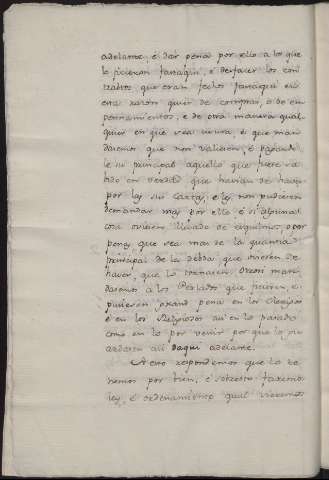 adelante, é dar pena por ello a los que
lo ficieron fasta aqui, é desfacer los con
tratos que eran fechos fasta aqui en
esta razon quier de compras, ó de em
peñamientos, é de otra manera qual
quier en que sea usura, é que man
daremos que non valiesen, é pagando
le su principal aquello que fuere sa
bido en verdad que havian de haver
por ley su Carta, é ley non pudiesen
demandar mas por ello, é si alguna
cosa oviesen llevado de esquilmos, ó por
penas que sea mas de la quantia
principal de la debda que oviesen de
haver, que lo tornasen. Otrosi man
daremos a los Perlados que ficiesen, é
pusiesen grand pena en los Clerigos
é en los Religiosos asi en lo pasado
como en lo por venir por que lo gu
ardasen asi daqui adelante.
A esto respondemos que lo te
nemos por bien, é sobresto faremos
ley, é ordenamiento qual vieremos